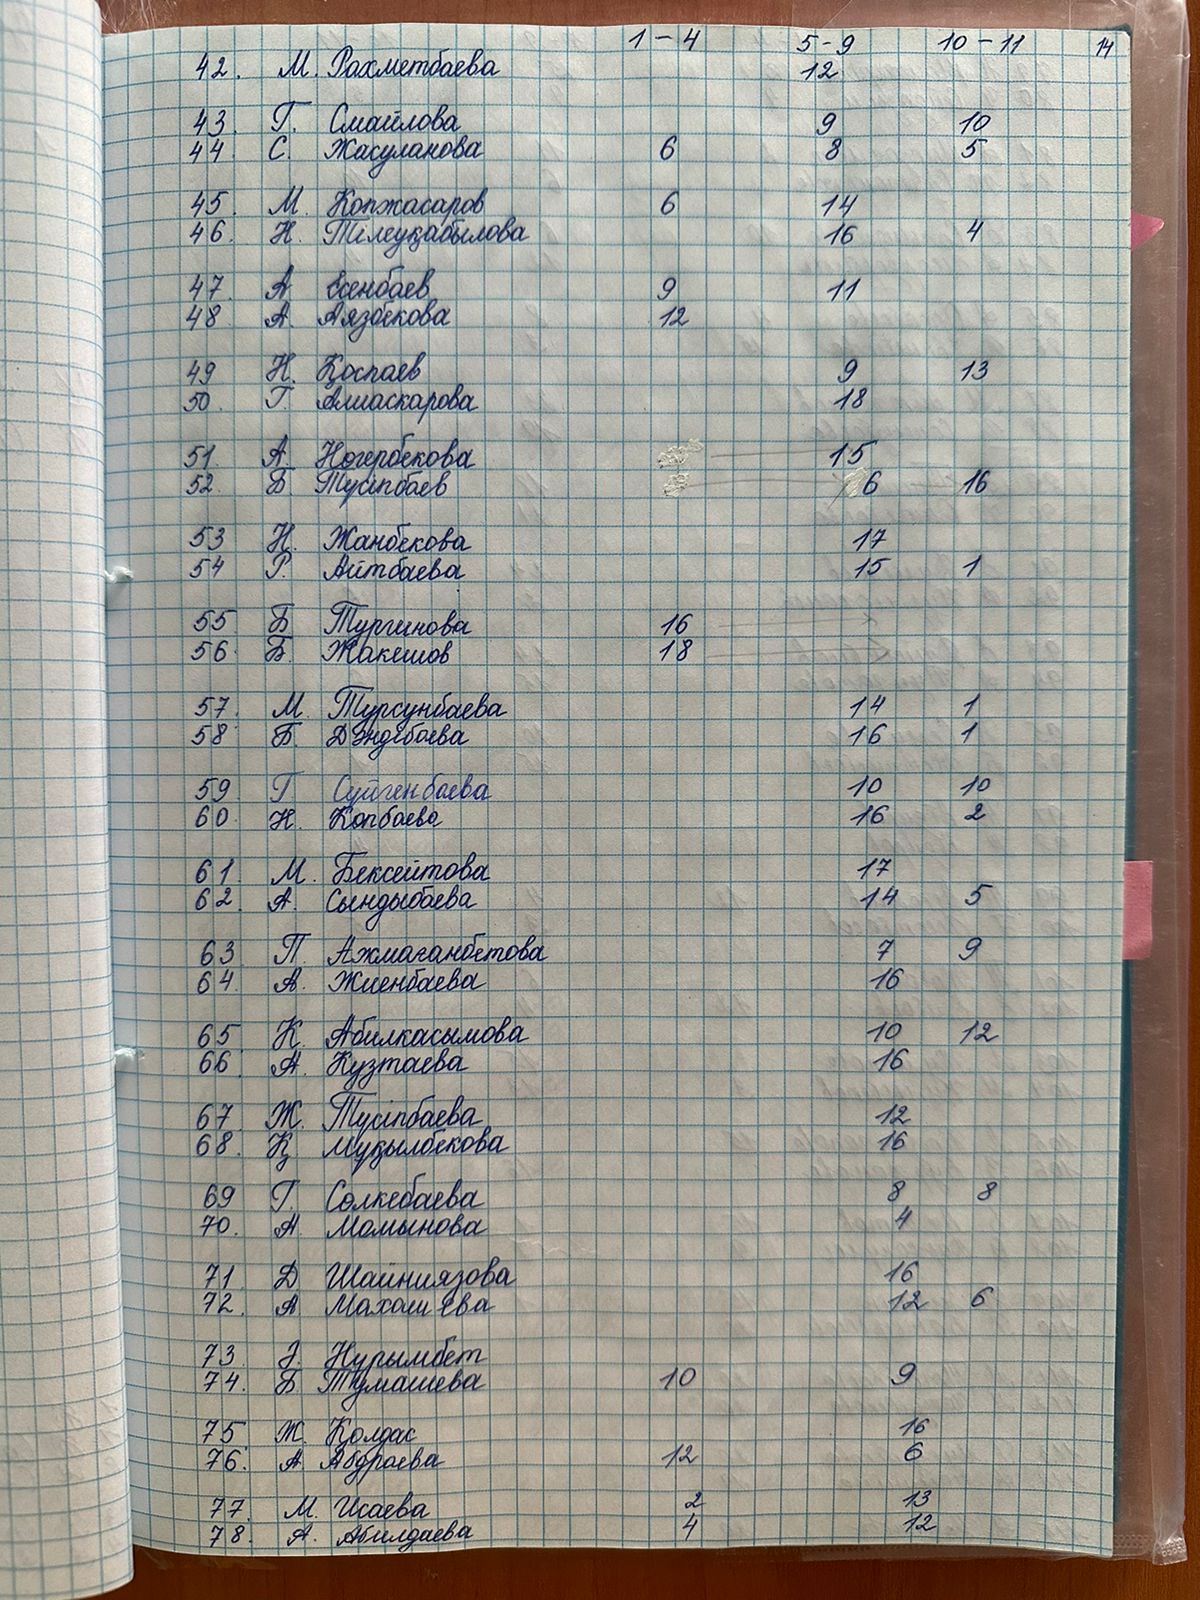 1 - 4 5 - 9 10 - 11 14
42. М. Рахметбаева 12
43. Г. Смайлова 9 10
44 С. Жасуланова 6 8 5
45. М. Копжасаров 6 14
46. Н. Тілеуқабылова 16 4
47. А Есенбаев 9 11
48. А. Аязбекова 12
49 Н. Қоспаев 9 13
50. Г. Алшаскарова 18
51. А. Ногербекова 15
52. Б Түсіпбаев 6 16
53 Н. Жанбекова 17
54 Р. Айтбаева 15 1
55 Б Тургинова 16
56. Б. Жакешов 18
57. М. Турсунбаева 14 1
58. Б. Дәндібаева 16 1
59. Г Сүйгенбаева 10 10
60. Н. Копбаева 16 2
61. М. Бексейтова 17
62. А. Сындыбаева 14 5
63. П. Ажмаганбетова 7 9
64. А. Жиенбаева 16
65 К. Абилкасымова 10 12
66. А. Кузтаева 16
67. Ж. Түсіпбаева 12
68. Қ Мұқылбекова 16
69 Г. Солкебаева 8 8
70. А Момынова 4
71. Д Шайниязова 16
72. А 12 6
73 Нурымбет
74. Б Тумашева 10 9
75. Ж Қолдас 16
76. А Абдраева 12 6
77. М. Исаева 2 13
78. А. Абилдаева 4 12